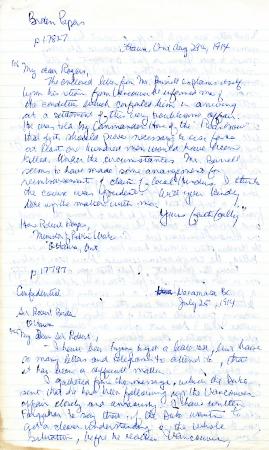 Borden Papers
p 17827
Ottawa, Ont Aug 28th, 1914
My dear Rogers,
The enclosed letter from Mr. Burrell explains itself
Upon his return from Vancouver he informed me of
the condition which confronted him in arriving
at a settlement of this very troublesome affair.
He was told by Commander Hose of the "Rainbow"
that if it should prove necessary to use force
at least one hundred men would have been
killed. Under the circumstances Mr. Burrell
seems to have made some arrangement for
reimbursement of claims of local Hindus. I think
the course was prudent. Will you kindly
take up the matter with me.
Yours faithfully
Hon. Robert Rogers,
Minister of Public Works
Ottawa, Ont.
p. 17797
Confidential
Naramata BC.
July 25th, 1914
Sir Robert Borden
Ottawa
My Dear Sir Robert,
I have been trying to get a been have
so many letters and telegrams to attend to, that
it has been a difficult matter.
I gathered from the message, which the Duke
sent that he had been following up the Vancouver
affair closely and anxiously. I have written
Farquhar to say that if the Duke wants to
get a clear understanding of the whole
situation, before he reaches Vancouver,